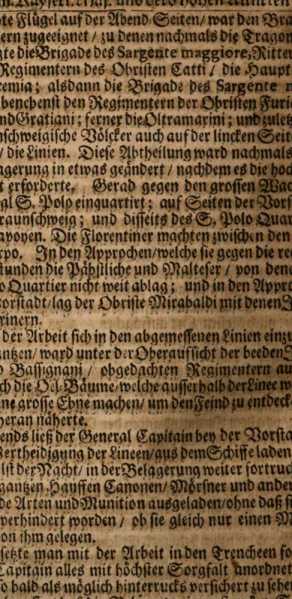 te Flügel auf der Abend Seiten/ war den Bra
ern zugeeignet / zu denen nachmals die Tragon
gte die Brigade des Sargente maggiore, Ritter
Regimentern des Obristen Catti / die Haupt
remia; alsdann die Brigade des Sargente m
benchenst den Regimentern der Obristen Furi
nd Gratiani; ferner die Oltramarini; und zuletz
nschweigische Völcker auch auf der lincken Seit
/ die Linien. Diese Abtheilung ward nachmals
agerung in etwas geändert / nachdem es die hoc
t erforderte. Gerad gegen den grossen Wac
gl S. Polo einquartirt; auf Seiten der Vors
raunschweig; und disseits des S. Polo Quar
avoyen. Die Florentiner machten zwischen den
rpo. In den Approchen/ welche sie gegen die re
stunden die Päbstliche und Malteser / von dene
o Quartier nicht weit ablag; und in den Appro
orstadt/ lag der Obriste Mirabaldi mit denen J
rinern.
der Arbeit sich in den abgemessenen Linien einzu
antzen/ ward unter der Oberaufsicht der beeden J
o Bassignani / obgedachten Regimentern au
ch die Oel-Bäume/ welche ausserhalb der Linee w
ne grosse Ebne machen/ um den Feind zu entdeck
heran näherte.
ends ließ der General Capitain bey der Vorsta
Vertheidigung der Lineen/ aus dem Schiffe laden
lst der Nacht/ in der Belagerung weiter fortruck
gantzen Hauffen Canonen/ Mörsner und ander
de Arten und Munition ausgeladen/ ohne daß si
verhindert worden / ob sie gleich nur einen M
on ihm gelegen.
setzte man mit der Arbeit in den Trencheen fo
Capitain alles mit höchster Sorgfalt anordnet
so bald als möglich hinterrucks versichert zu sehe